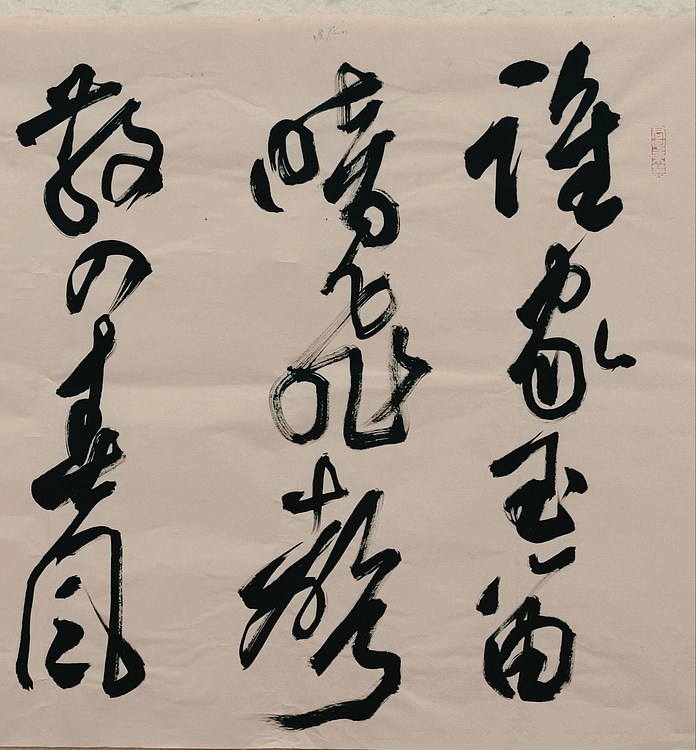 誰家玉笛
暗飛聲
散入春風